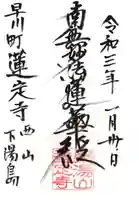 令和三年一月廿日
南無妙法蓮華経
早川町蓮定寺
西山
下湯島